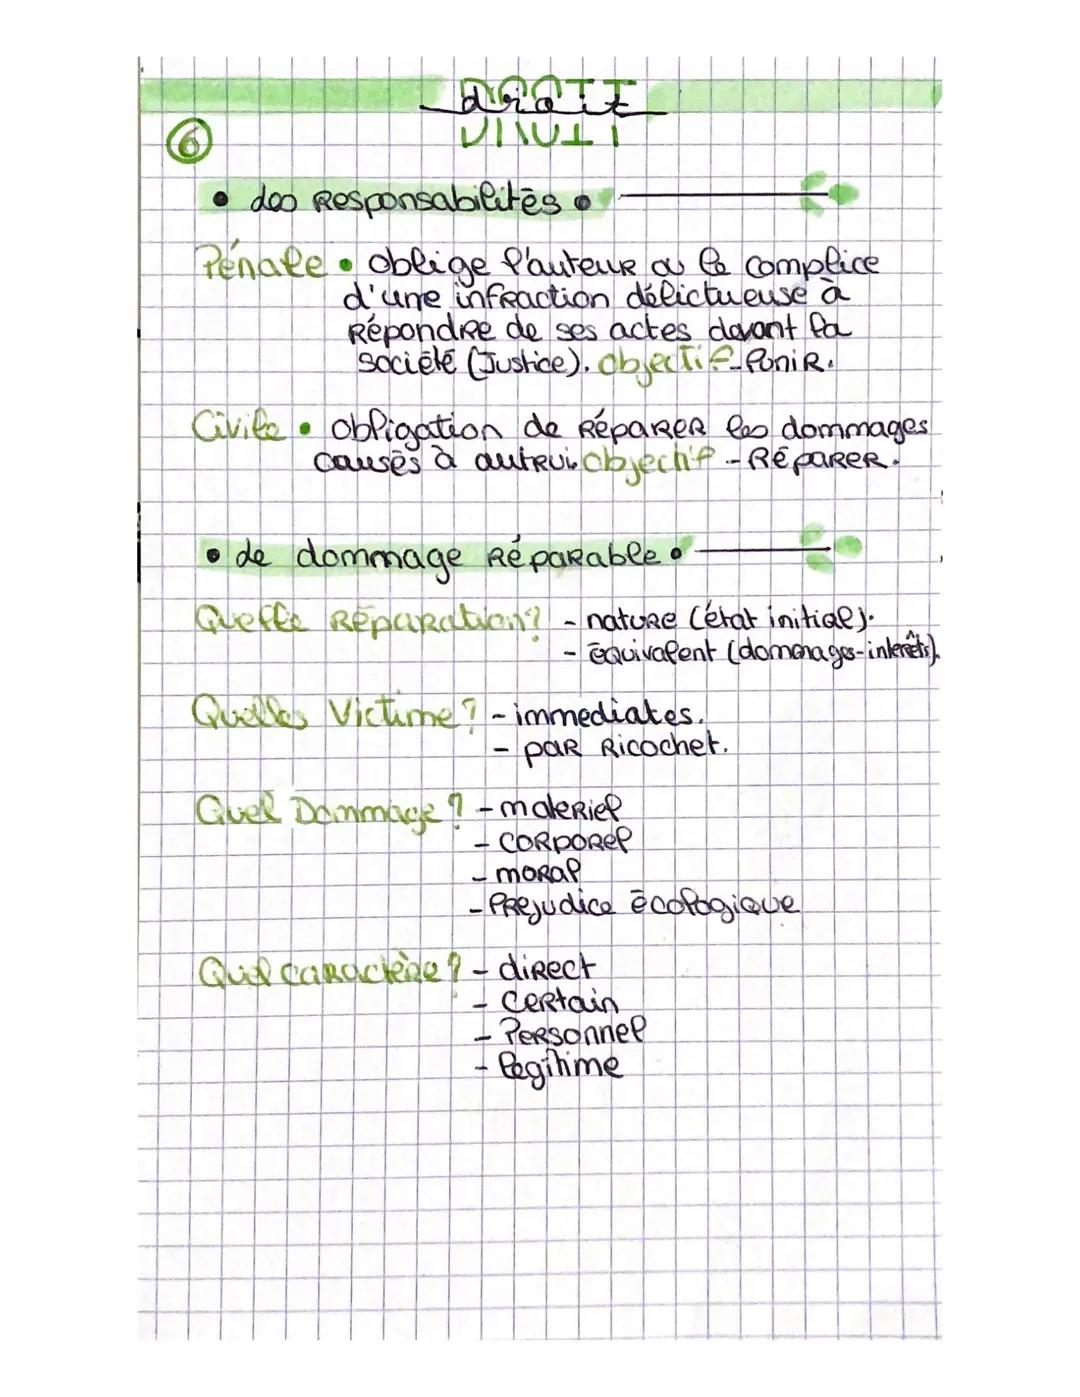 DROIT
droit
6
• des Responsabilités •
Pénale • oblige l'auteur ou le complice
d'une infraction délictueuse à
Répondre de ses actes devant la
société (Justice). objectif - Punir.
Civile • obligation de Réparer les dommages
causés à autrui. Objectif - Réparer.
• de dommage Réparable •
Quelle Réparation? - nature (état initial).
- équivalent (dommages-interêts).
Quelles Victime? - immediates.
- par Ricochet.
Quel Dommage? - materiel
- corporel
- moral
- Prejudice écologique
Quel caractère? - direct
- certain
- Personnel
- legitime